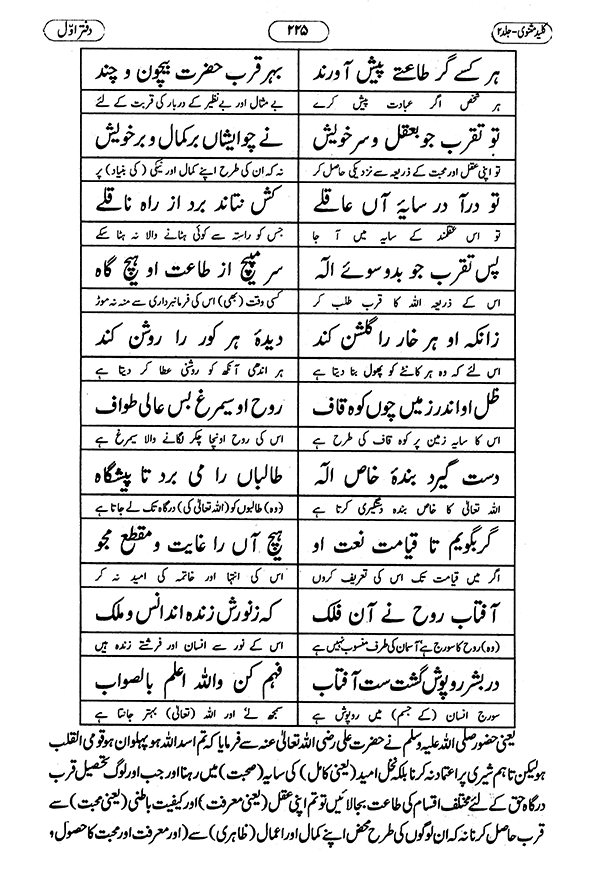 کلید مثنوی-جلد۲ ۲۲۵ دفتر اوّل
ہر کسے گر طاعتے پیش آورند بہر قرب حضرت بیچون و چند
ہر شخص اگر عبادت پیش کرے بے مثال اور بے نظیر کے دربار کی قربت کے لئے
تو تقرب جو بعقل و سر خویش نے چو ایشاں بر کمال و بر خویش
تو اپنی عقل اور محبت کے ذریعہ سے نزدیکی حاصل کر نہ کہ ان کی طرح اپنے کمال اور نیکی (کی بنیاد) پر
تو در آ در سایۂ آں عاقلے کش نتاند برد از راہ ناقلے
تو اس عقلمند کے سایہ میں آ جا جس کو راستہ سے کوئی ہٹانے والا نہ ہٹا سکے
پس تقرب جو بدو سوئے الٰہ سر مپیچ از طاعت او ہیچ گاہ
اس کے ذریعہ اللہ کا قرب طلب کر کسی وقت (بھی) اس کی فرمانبرداری سے منہ نہ موڑ
زانکہ او ہر خار را گلشن کند دیدۂ ہر کور را روشن کند
اس لئے کہ وہ ہر کانٹے کو پھول بنا دیتا ہے ہر اندھی آنکھ کو روشنی عطا کر دیتا ہے
ظل او اندر زمیں چوں کوہ قاف روح او سیمرغ بس عالی طواف
اس کا سایہ زمین پر کوہ قاف کی طرح ہے اس کی روح اونچا چکر لگانے والا سیمرغ ہے
دست گیرد بندۂ خاص الٰہ طالباں را می برد تا پیشگاہ
اللہ تعالیٰ کا خاص بندہ دستگیری کرتا ہے (وہ) طالبوں کو (اللہ تعالیٰ کی) درگاہ تک لے جاتا ہے
گر بگویم تا قیامت نعت او ہیچ آں را غایت و مقطع مجو
اگر میں قیامت تک اس کی تعریف کروں اس کی انتہا اور خاتمہ کی امید نہ کر
آفتاب روح نے آن فلک کہ ز نورش زندہ اند انس و ملک
(وہ) روح کا سورج ہے آسمان کی طرف منسوب نہیں ہے اس کے نور سے انسان اور فرشتے زندہ ہیں
در بشر روپوش گشت ست آفتاب فہم کن واللہ اعلم بالصواب
سورج انسان (کے جسم) میں روپوش ہے سمجھ لے اور اللہ (تعالیٰ) بہتر جانتا ہے
یعنی حضور صلی اللہ علیہ وسلم نے حضرت علی رضی اللہ تعالیٰ عنہ سے فرمایا کہ تم اسد اللہ ہو پہلوان ہو قومی القلب
ہو لیکن تاہم شیری پر اعتماد نہ کرنا بلکہ نخل امید (یعنی کامل) کی سایہ (صحبت) میں رہنا اور جب اور لوگ تحصیل قرب
درگاہ حق کے لئے مختلف اقسام کی طاعت بجالائیں تو تم اپنی عقل (یعنی معرفت) اور کیفیت باطنی (یعنی محبت) سے
قرب حاصل کرنا نہ کہ ان لوگوں کی طرح محض اپنے کمال اور اعمال (ظاہری) سے (اور معرفت اور محبت کا حصول،